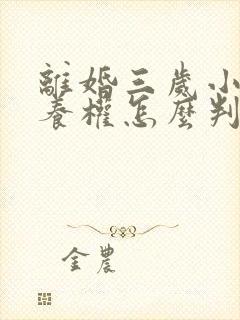 離婚三歲小
養權怎麼判
金農